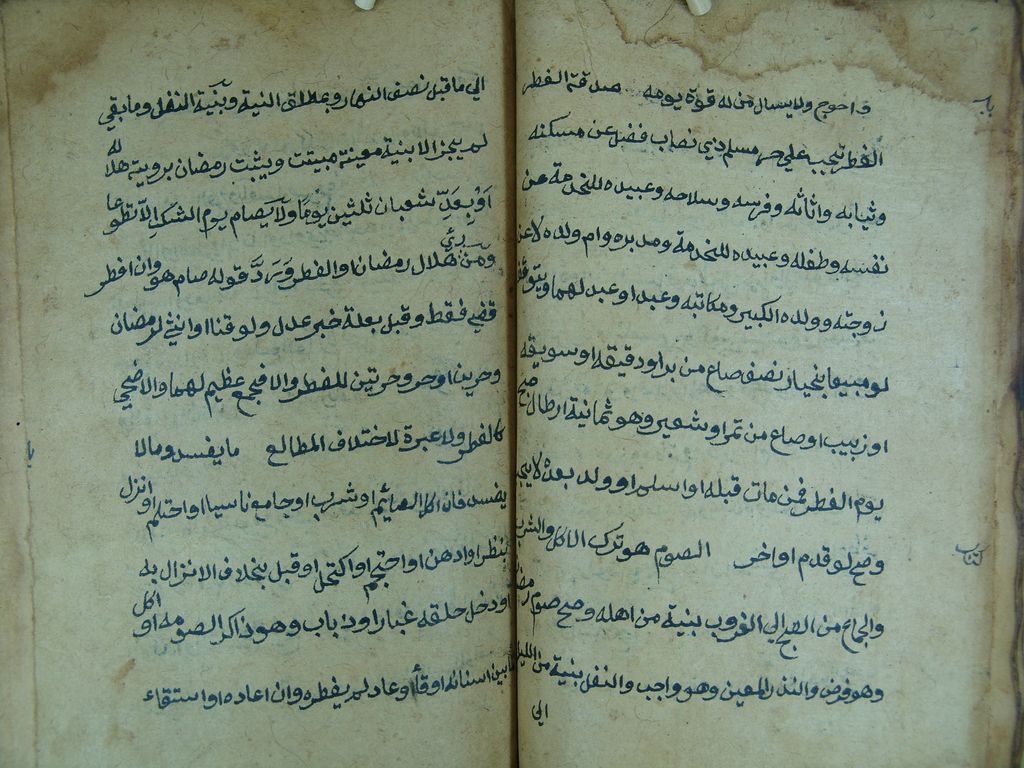 واحوج ولا يسال من له قوة يومه صدقة الفطر
باب
الفطر تجب علي حر مسلم ذي نصاب فضل عن مسكنه
وثيابه واثاثه وفرسه وسلاحه وعبيده للخدمة عن
نفسه وطفله وعبيده للخدمة ومدبره وام ولده لا عن
زوجته وولده الكبير ومكاتبه وعبد او عبد لهما ويتوقف
لو مبيعا بخيار نصف صاع من بر او دقيقه او سويقه
او زبيب او صاع من تمر او شعير وهو ثمانية ارطال صبح
يوم الفطر فمن مات قبله او اسلم او ولد بعده لا يجب
وصح لو قدم او اخر الصوم هو ترك الاكل والشرب
كتاب
والجماع من الصبح الي الغروب بنية من اهله وصح صوم رمضان
وهو فرض والنذر المعين وهو واجب والنفل بنية من الليل
الي
الي ما قبل نصف النهار وبمطلق النية وبنية النفل وما بقي
لم يجز الا بنية معينة مبيتة ويثبت رمضان بروية هلاله
او بعد شعبان ثلثين يوما ولا يصام يوم الشك الا تطوعا
ومن رئي هلال رمضان او الفطر ورد قوله صام هو وان افطر
قضي فقط وقبل بعلة خبر عدل ولو قنا او انثي لرمضان
وحرين او حر وحرتين للفطر والا فجمع عظيم لهما والاضحي
كالفطر ولا عبرة لاختلاف المطالع ما يفسد وما لا
با
يفسد فان اكل الصائم او شرب او جامع ناسيا او احتلم او انزل
بنظر او ادهن او احتجم او اكتحل او قبل بخلاف الانزال به
او دخل حلقه غبار او ذباب وهو ذاكر لصومه او اكل
ما بين اسنانه او قاأ وعاد لم يفطر وان اعاده او استقاء